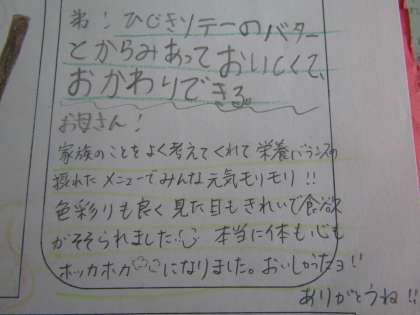 弟:ひじきソテーのバター
とからみあっておいしくて、
おかわりできる。
お母さん!
家族のことをよく考えてくれて栄養バランスの
摂れたメニューでみんな元気モリモリ!!
色彩りも良く見た目もきれいで食欲
がそそられました 本当に体も心も
ホッカホカになりました。おいしかったヨ!!
ありがとうね!!